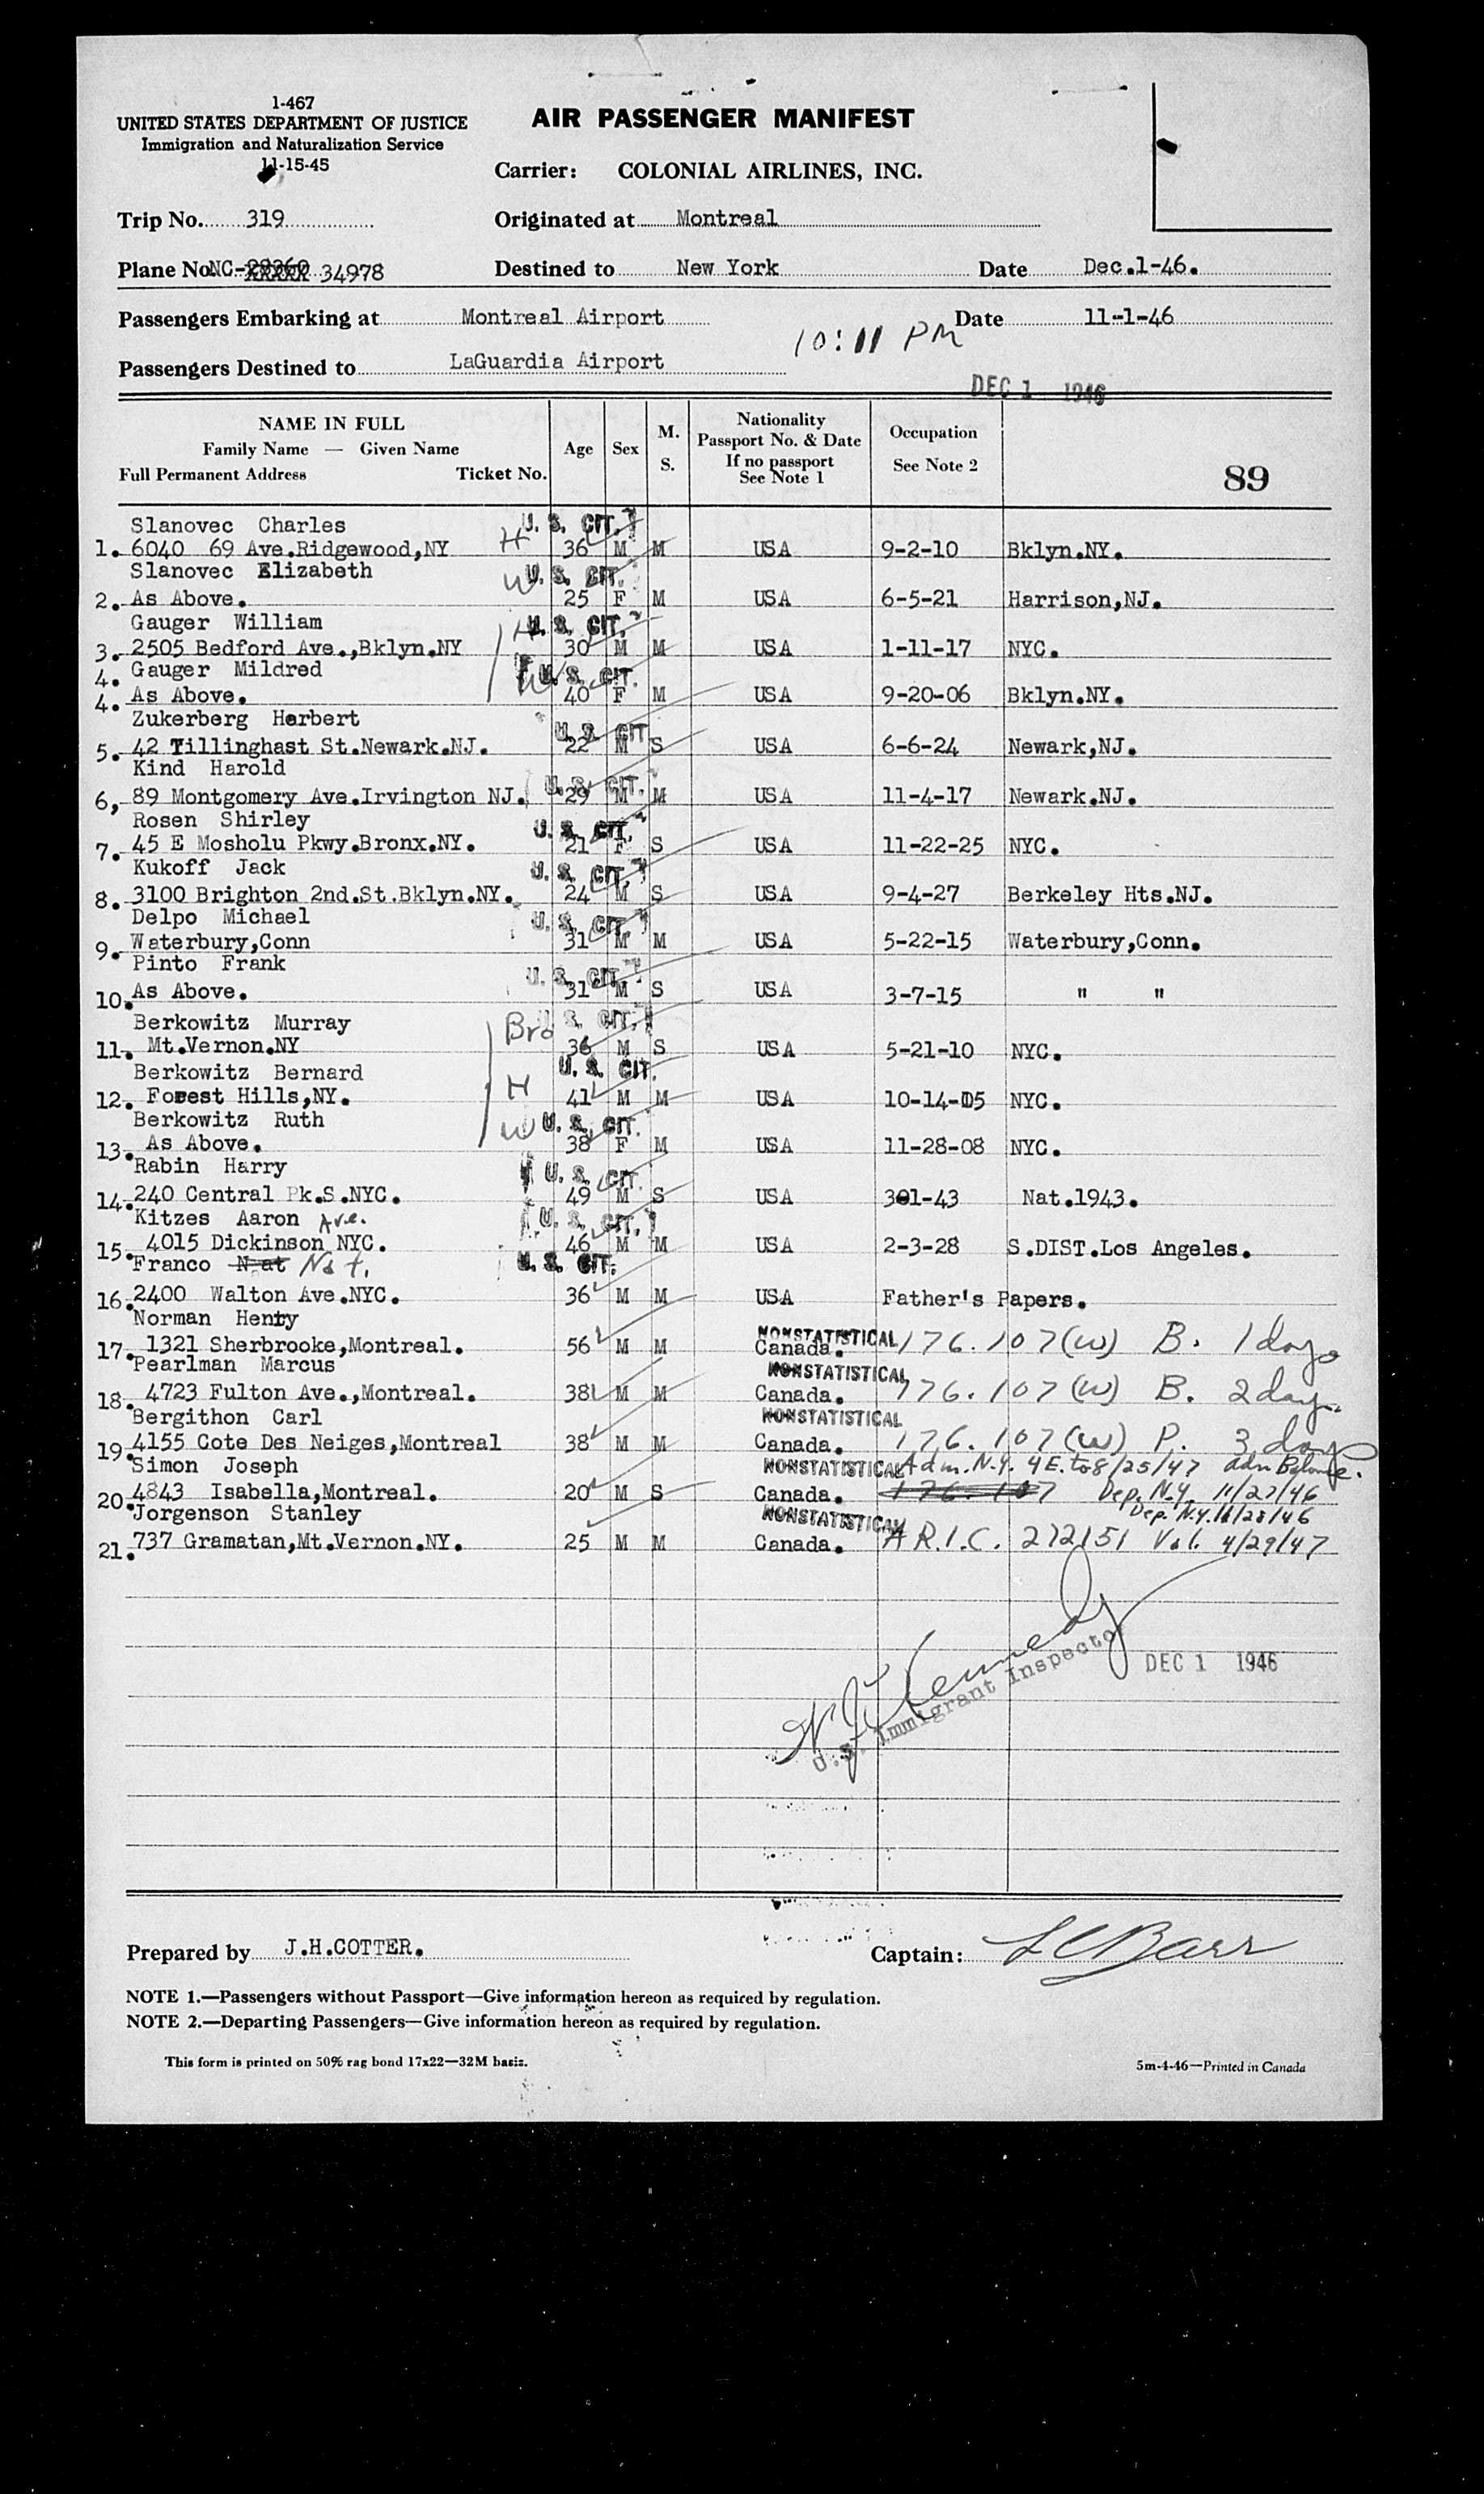 1-467
UNITED STATES DEPARTMENT OF JUSTICE
Immigration and Naturalization Service
11-15-45
AIR PASSENGER MANIFEST
Carrier: COLONIAL AIRLINES, INC.
Trip No. 319 Originated at Montreal
Plane No. NC- 34978 Destined to New York Date Dec.1-46.
Passengers Embarking at Montreal Airport Date 11-1-46
10:11 PM
Passengers Destined to LaGuardia Airport
DEC 1 1946
NAME IN FULL
Family Name — Given Name
Full Permanent Address Ticket No.
Age Sex M. S.
Nationality
Passport No. & Date
If no passport
See Note 1
Occupation
See Note 2
89
Slanovec Charles H U. S. CIT.
1. 6040 69 Ave.Ridgewood,NY 36 M M USA 9-2-10 Bklyn.NY.
Slanovec Elizabeth W U. S. CIT.
2. As Above. 25 F M USA 6-5-21 Harrison,NJ.
Gauger William H U. S. CIT.
3. 2505 Bedford Ave.,Bklyn.NY 30 M M USA 1-11-17 NYC.
4. Gauger Mildred W U. S. CIT.
4. As Above. 40 F M USA 9-20-06 Bklyn.NY.
Zukerberg Herbert U. S. CIT
5. 42 Tillinghast St.Newark.NJ. 22 M S USA 6-6-24 Newark,NJ.
Kind Harold U. S. CIT.
6, 89 Montgomery Ave.Irvington NJ. 29 M M USA 11-4-17 Newark.NJ.
Rosen Shirley U. S. CIT.
7. 45 E Mosholu Pkwy.Bronx.NY. 21 F S USA 11-22-25 NYC.
Kukoff Jack U. S. CIT.
8. 3100 Brighton 2nd.St.Bklyn.NY. 24 M S USA 9-4-27 Berkeley Hts.NJ.
Delpo Michael U. S. CIT.
9. Waterbury,Conn 31 M M USA 5-22-15 Waterbury,Conn.
Pinto Frank U. S. CIT.
10. As Above. 31 M S USA 3-7-15 " "
Berkowitz Murray Bro U. S. CIT.
11. Mt.Vernon.NY 36 M S USA 5-21-10 NYC.
Berkowitz Bernard H U. S. CIT.
12. Forest Hills,NY. 41 M M USA 10-14-05 NYC.
Berkowitz Ruth W U. S. CIT.
13. As Above. 38 F M USA 11-28-08 NYC.
Rabin Harry U. S. CIT.
14. 240 Central Pk.S.NYC. 49 M S USA 301-43 Nat.1943.
Kitzes Aaron Ave. U. S. CIT.
15. 4015 Dickinson NYC. 46 M M USA 2-3-28 S.DIST.Los Angeles.
Franco Nat Nat. U. S. CIT.
16. 2400 Walton Ave.NYC. 36 M M USA Father's Papers.
Norman Henry NONSTATISTICAL
17. 1321 Sherbrooke,Montreal. 56 M M Canada. 176.107(W) B. 1 days
Pearlman Marcus NONSTATISTICAL
18. 4723 Fulton Ave.,Montreal. 38 M M Canada. 176.107(W) B. 2 days
Bergithon Carl NONSTATISTICAL
19. 4155 Cote Des Neiges,Montreal 38 M M Canada. 176.107(W) P. 3 days
Simon Joseph NONSTATISTICAL Adm. N.Y. 4E. to 8/25/47
20. 4843 Isabella,Montreal. 20 M S Canada. 176.107 Dep. N.Y. 11/27/46
Dep. N.Y. 11/28/46
Jorgenson Stanley NONSTATISTICAL
21. 737 Gramatan,Mt.Vernon.NY. 25 M M Canada. A R.I.C. 272151 Val. 4/29/47
Kennedy
U.S. Immigrant Inspector
DEC 1 1946
Prepared by J.H.COTTER. Captain: L C Barr
NOTE 1.—Passengers without Passport—Give information hereon as required by regulation.
NOTE 2.—Departing Passengers—Give information hereon as required by regulation.
This form is printed on 50% rag bond 17x22—32M basis. 5m-4-46—Printed in Canada